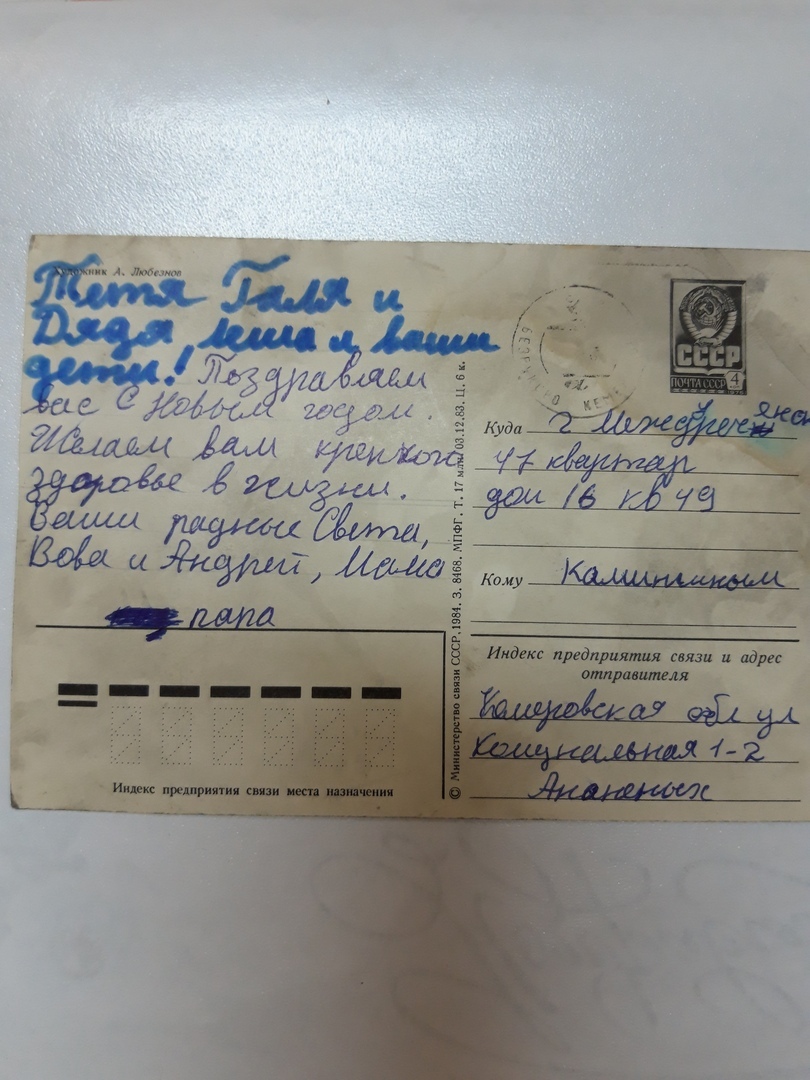 Художник А. Любезнов
Тетя Галя и
Дядя Леша и ваши
дети! Поздравляем
вас С Новым годом.
Желаем вам крепкого
здоровье в жизни.
Ваши радные Света,
Вова и Андрей, Мама
папа
Индекс предприятия связи места назначения
© Министерство связи СССР. 1984. З. 8468. МПФГ. Т. 17 млн. 03.12.83. Ц. 6 к.
СССР
ПОЧТА СССР 4
КЕМЕ
Куда г Междуреченск
47 квартар
дом 16 кв 49
Кому
Индекс предприятия связи и адрес
отправителя
Кемеровская обл ул
Комунальная 1-2
Ананьиных